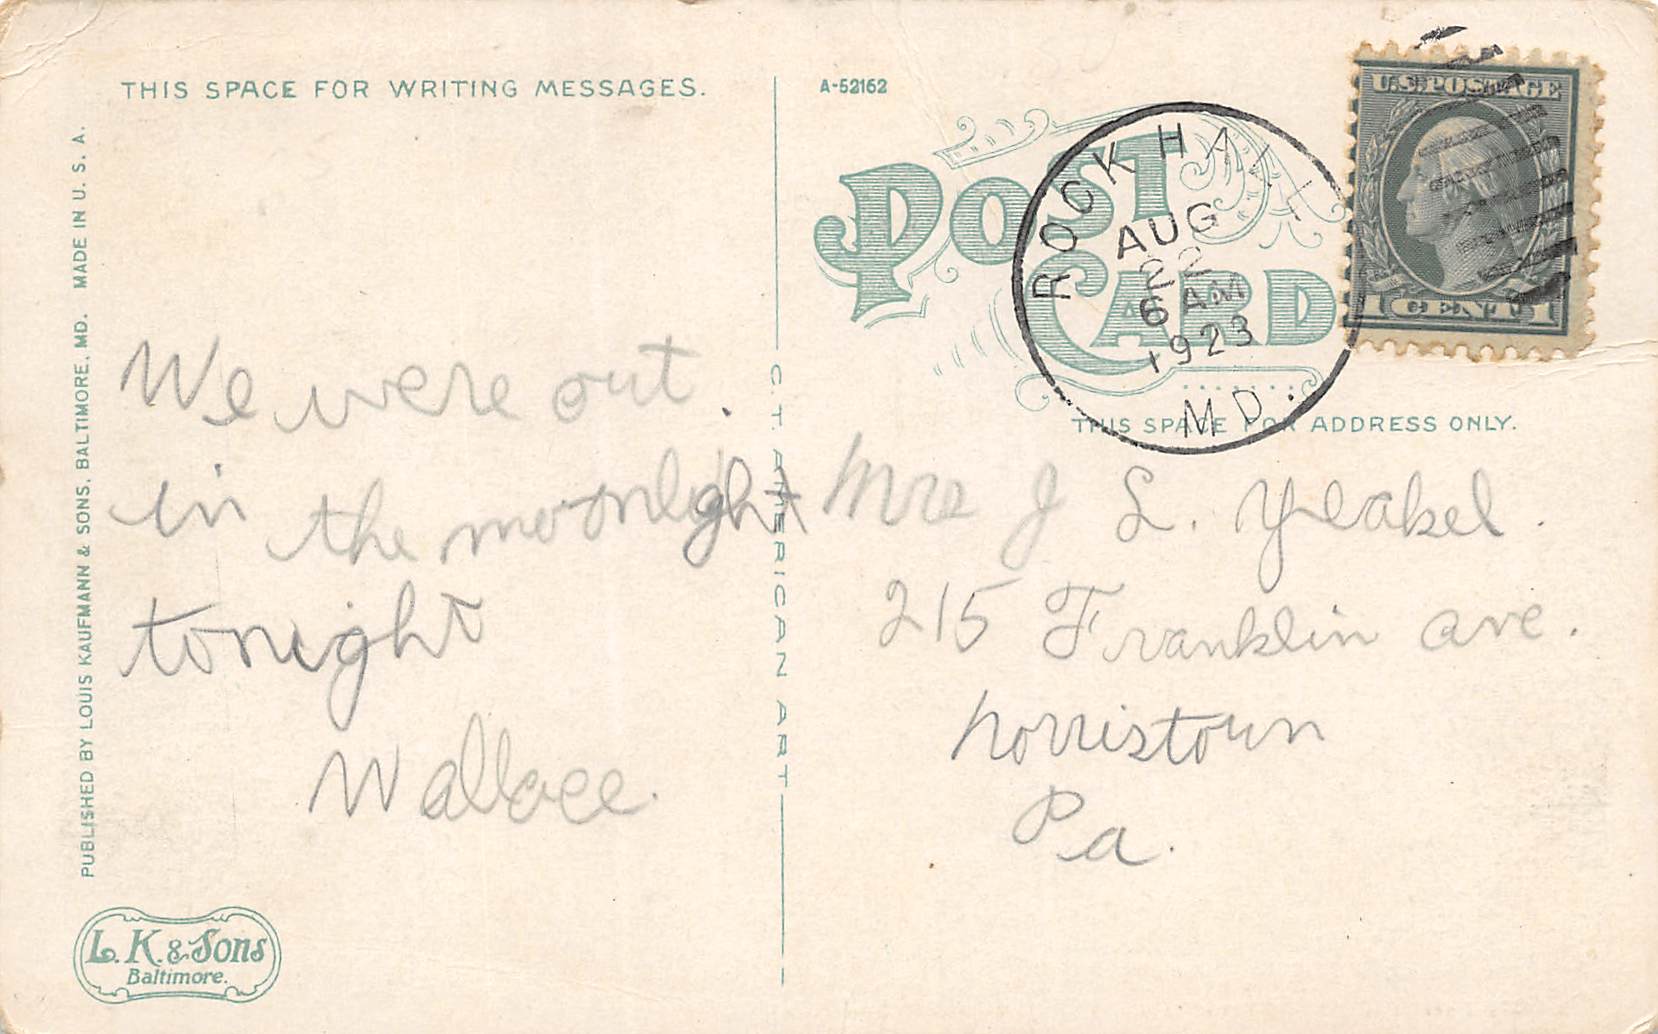 THIS SPACE FOR WRITING MESSAGES.
We were out
in the moonlight
tonight
Wallace.
PUBLISHED BY LOUIS KAUFMANN & SONS, BALTIMORE, MD. MADE IN U. S. A.
L. K. & Sons
Baltimore.
C. T. AMERICAN ART
A-52162
POST
CARD
ROCK HALL
AUG
22
6 AM
1923
MD.
U.S. POSTAGE
1 CENT 1
THIS SPACE FOR ADDRESS ONLY.
Mrs J L. Yeakel.
215 Franklin ave.
Norristown
Pa.